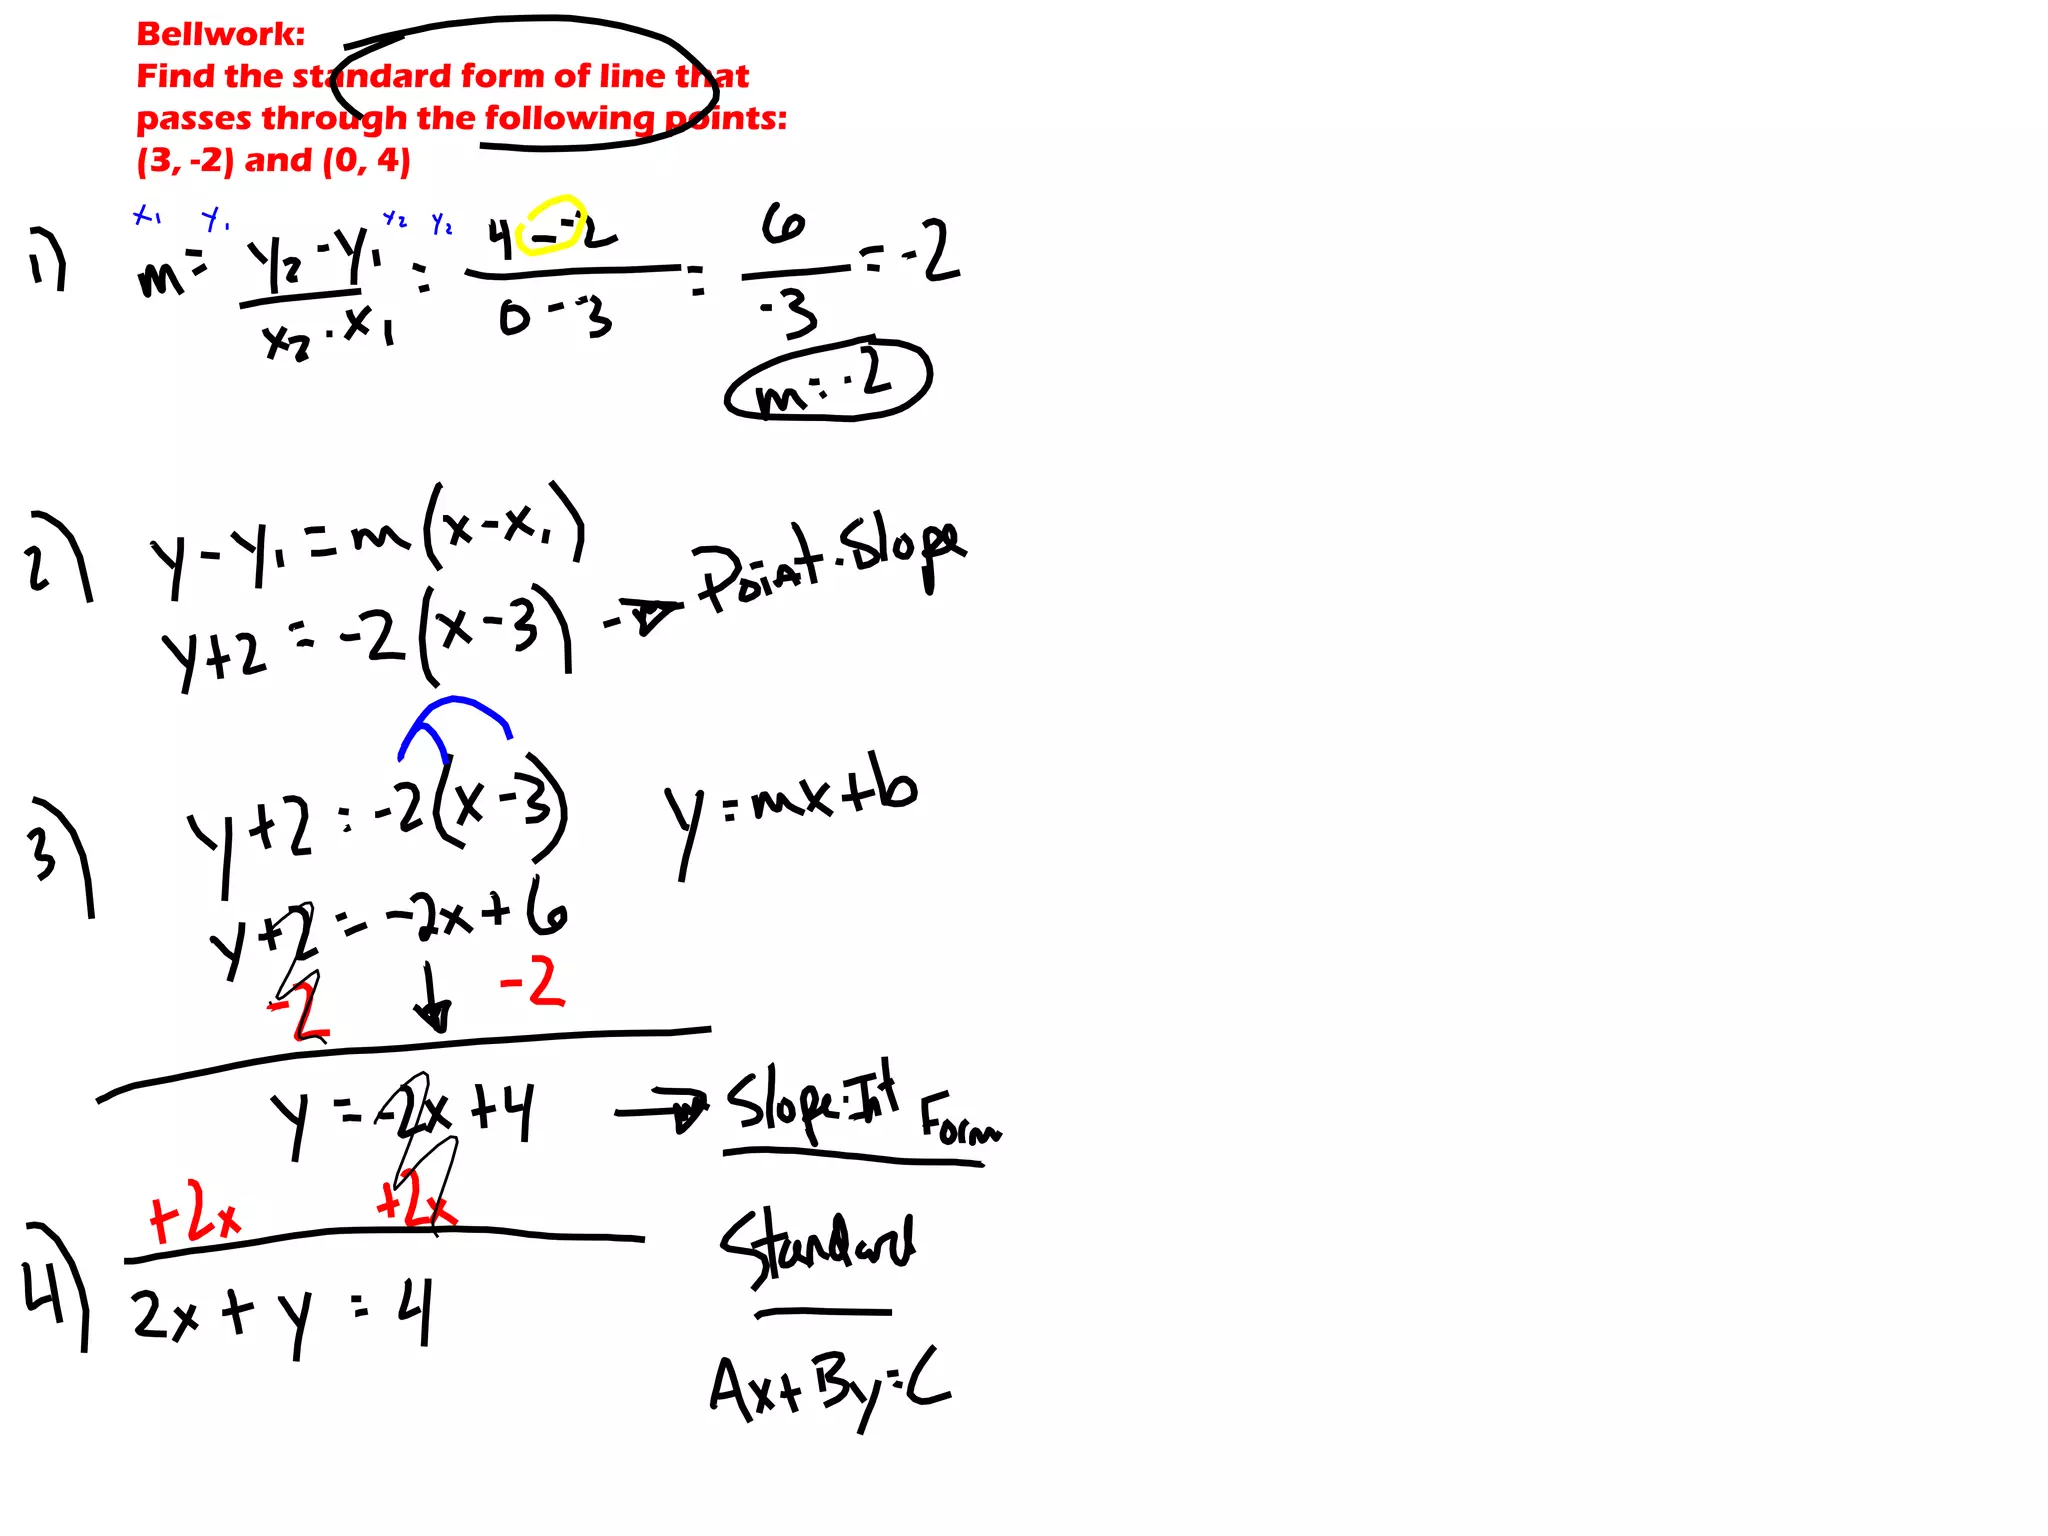 Bellwork:
Find the standard form of line that
passes through the following points:
(3, -2) and (0, 4)
x₁ y₁ y₂ y₂
1) m = (y₂ - y₁)/(x₂ - x₁) = (4 - -2)/(0 - 3) = 6/-3 = -2
m = -2
2) y - y₁ = m(x - x₁)
y+2 = -2(x-3) → Point-Slope
3) y+2 = -2(x-3) y=mx+b
y+2 = -2x+6
-2 -2
y = -2x+4 → Slope-Int Form
+2x +2x
Standard
4) 2x + y = 4
Ax+By=C